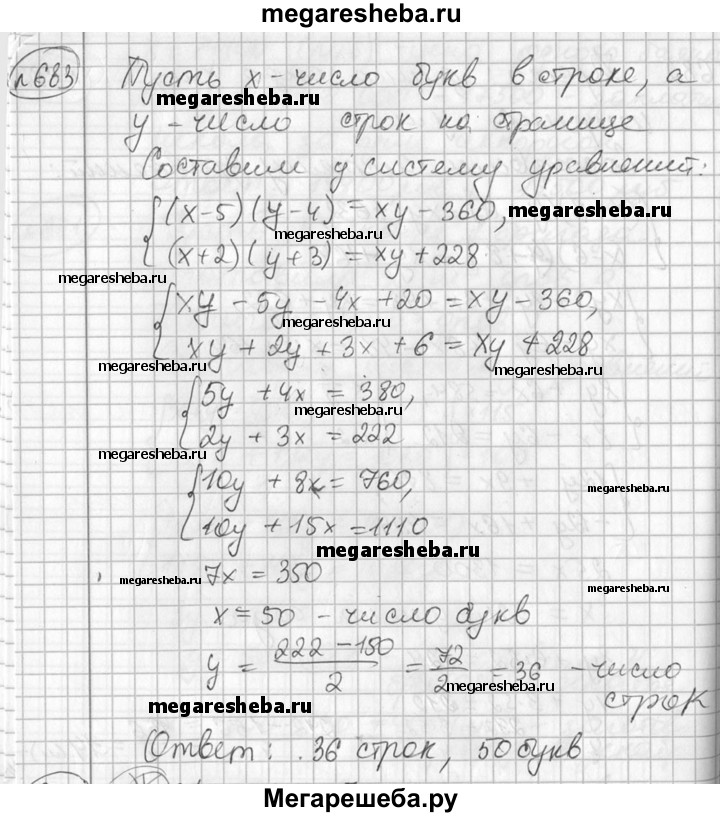 megaresheba.ru
№683 Пусть x - число букв в строке, а
megaresheba.ru
y - число строк на странице
Составим систему уравнений:
(x-5)(y-4) = xy - 360, megaresheba.ru
megaresheba.ru
(x+2)(y+3) = xy + 228
megaresheba.ru
xy - 5y - 4x + 20 = xy - 360,
megaresheba.ru
xy + 2y + 3x + 6 = xy + 228
megaresheba.ru megaresheba.ru
5y + 4x = 380,
megaresheba.ru
2y + 3x = 222
megaresheba.ru
10y + 8x = 760,
megaresheba.ru
10y + 15x = 1110
megaresheba.ru
megaresheba.ru 7x = 350
megaresheba.ru
x = 50 - число букв
y = (222 - 150)/2 = 72/2 = 36 - число
megaresheba.ru
строк
megaresheba.ru
Ответ: 36 строк, 50 букв
megaresheba.ru
Мегарешеба.ру